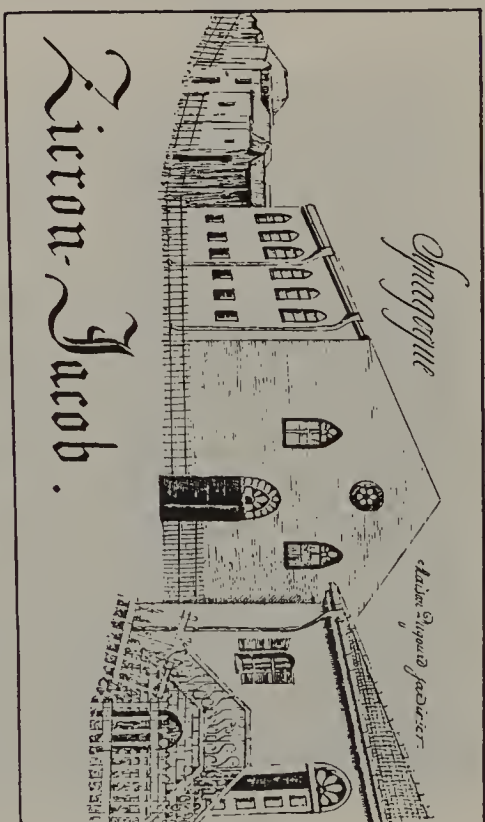 Synagogue
Maison jardinier
Zicron-Jacob.